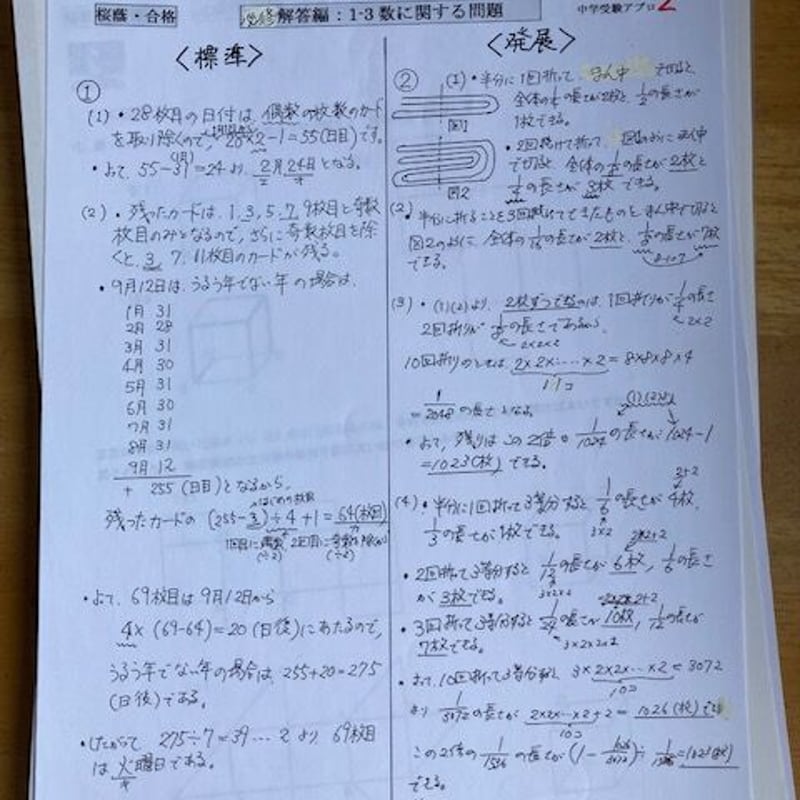 桜蔭・合格
必修 解答編:1-3 数に関する問題
中学受験アプロ
<標準>
①
(1)・28枚目の日付は、偶数の枚数のカード
を取り除くので、28×2-1=55(日目)です。
・よって、55-31=24より、2月24日となる。
(1月)
(2)・残ったカードは、1、3、5、7、9枚目と奇数
枚目のみとなるので、さらに奇数枚目を除
くと、3、7、11枚目のカードが残る。
・9月12日は、うるう年でない年の場合は、
1月 31
2月 28
3月 31
4月 30
5月 31
6月 30
7月 31
8月 31
9月 12
+ 255(日目)となるから、
はじめの枚数
残ったカードの (255-3)÷4+1=64(枚目)
1回目に偶数、2回目に奇数を除くから
(÷2) (÷2)
・よって、69枚目は9月12日から
4×(69-64)=20(日後)にあたるので、
うるう年でない年の場合は、255+20=275
(日後)である。
・したがって 275÷7=39…2より 69枚目
は火曜日である。
<発展>
②
(1)・半分に1回折って、まん中で切ると、
全体の1/4の長さが2枚と、1/2の長さが
1枚できる。
図1
・2回続けて折って、
で切ると、全体の1/8の長さが2枚と
1/4の長さが3枚できる。
図2
(2)・半分に折ることを3回続けてできたものを、まん中で切ると
図2のように、全体の1/16の長さが2枚と、1/8の長さが7枚
できる。
(3)・(1)(2)より、2枚ずつできるのは、1回折りが1/4の長さ
2×2
2回折りが1/8の長さであるから、
2×2×2
10回折りのときは、2×2×…×2=8×8×8×4
11コ
=1/2048の長さとなる。
(1)(2)より
・よって、残りはこの2倍の1/1024の長さが1024-1
=1023(枚)できる。
(4)・半分に1回折って3等分すると、1/6の長さが4枚、
2+2
3×2
1/3の長さが1枚できる。
2×2+2
・2回折って3等分すると1/12の長さが6枚、1/6の長さ
3×2×2
が3枚できる。
・3回折って3等分すると1/24の長さが10枚、1/12の長さが
3×2×2×2
7枚できる。
・よって、10回折って3等分すると 3×2×2×…×2=3072
10コ
より1/3072の長さが 2×2×…×2+2=1026(枚)でき
10コ
この2倍の1/1536の長さが(1-1026/3072)÷1/1536=1023(枚)
できる。